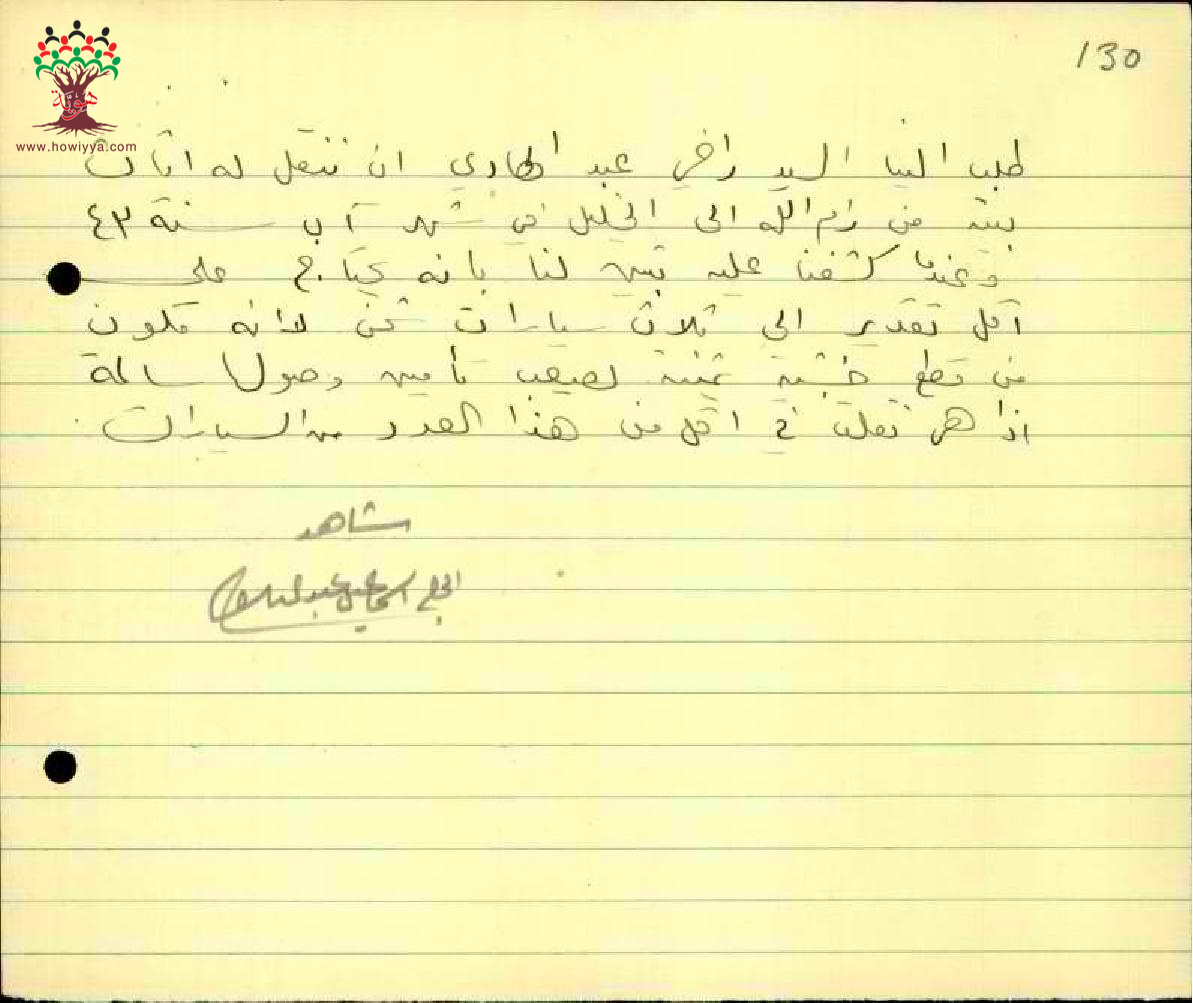 130
هوية
www.howiyya.com
طلب الينا السيد راضي عبد الهادي ان ننقل له اثاث
بيته من رام الله الى الخليل في شهر آب سنة ٤٣
وعندما كشفنا عليه تبين لنا بانه يحتاج على
اقل تقدير الى ثلاث سيارات شحن لانه مكون
من قطع خشبية ثمينة يصعب تأمين وصولها سالمة
اذا هي نقلت في اقل من هذا العدد من السيارات.
شاهد
الحاج اسماعيل